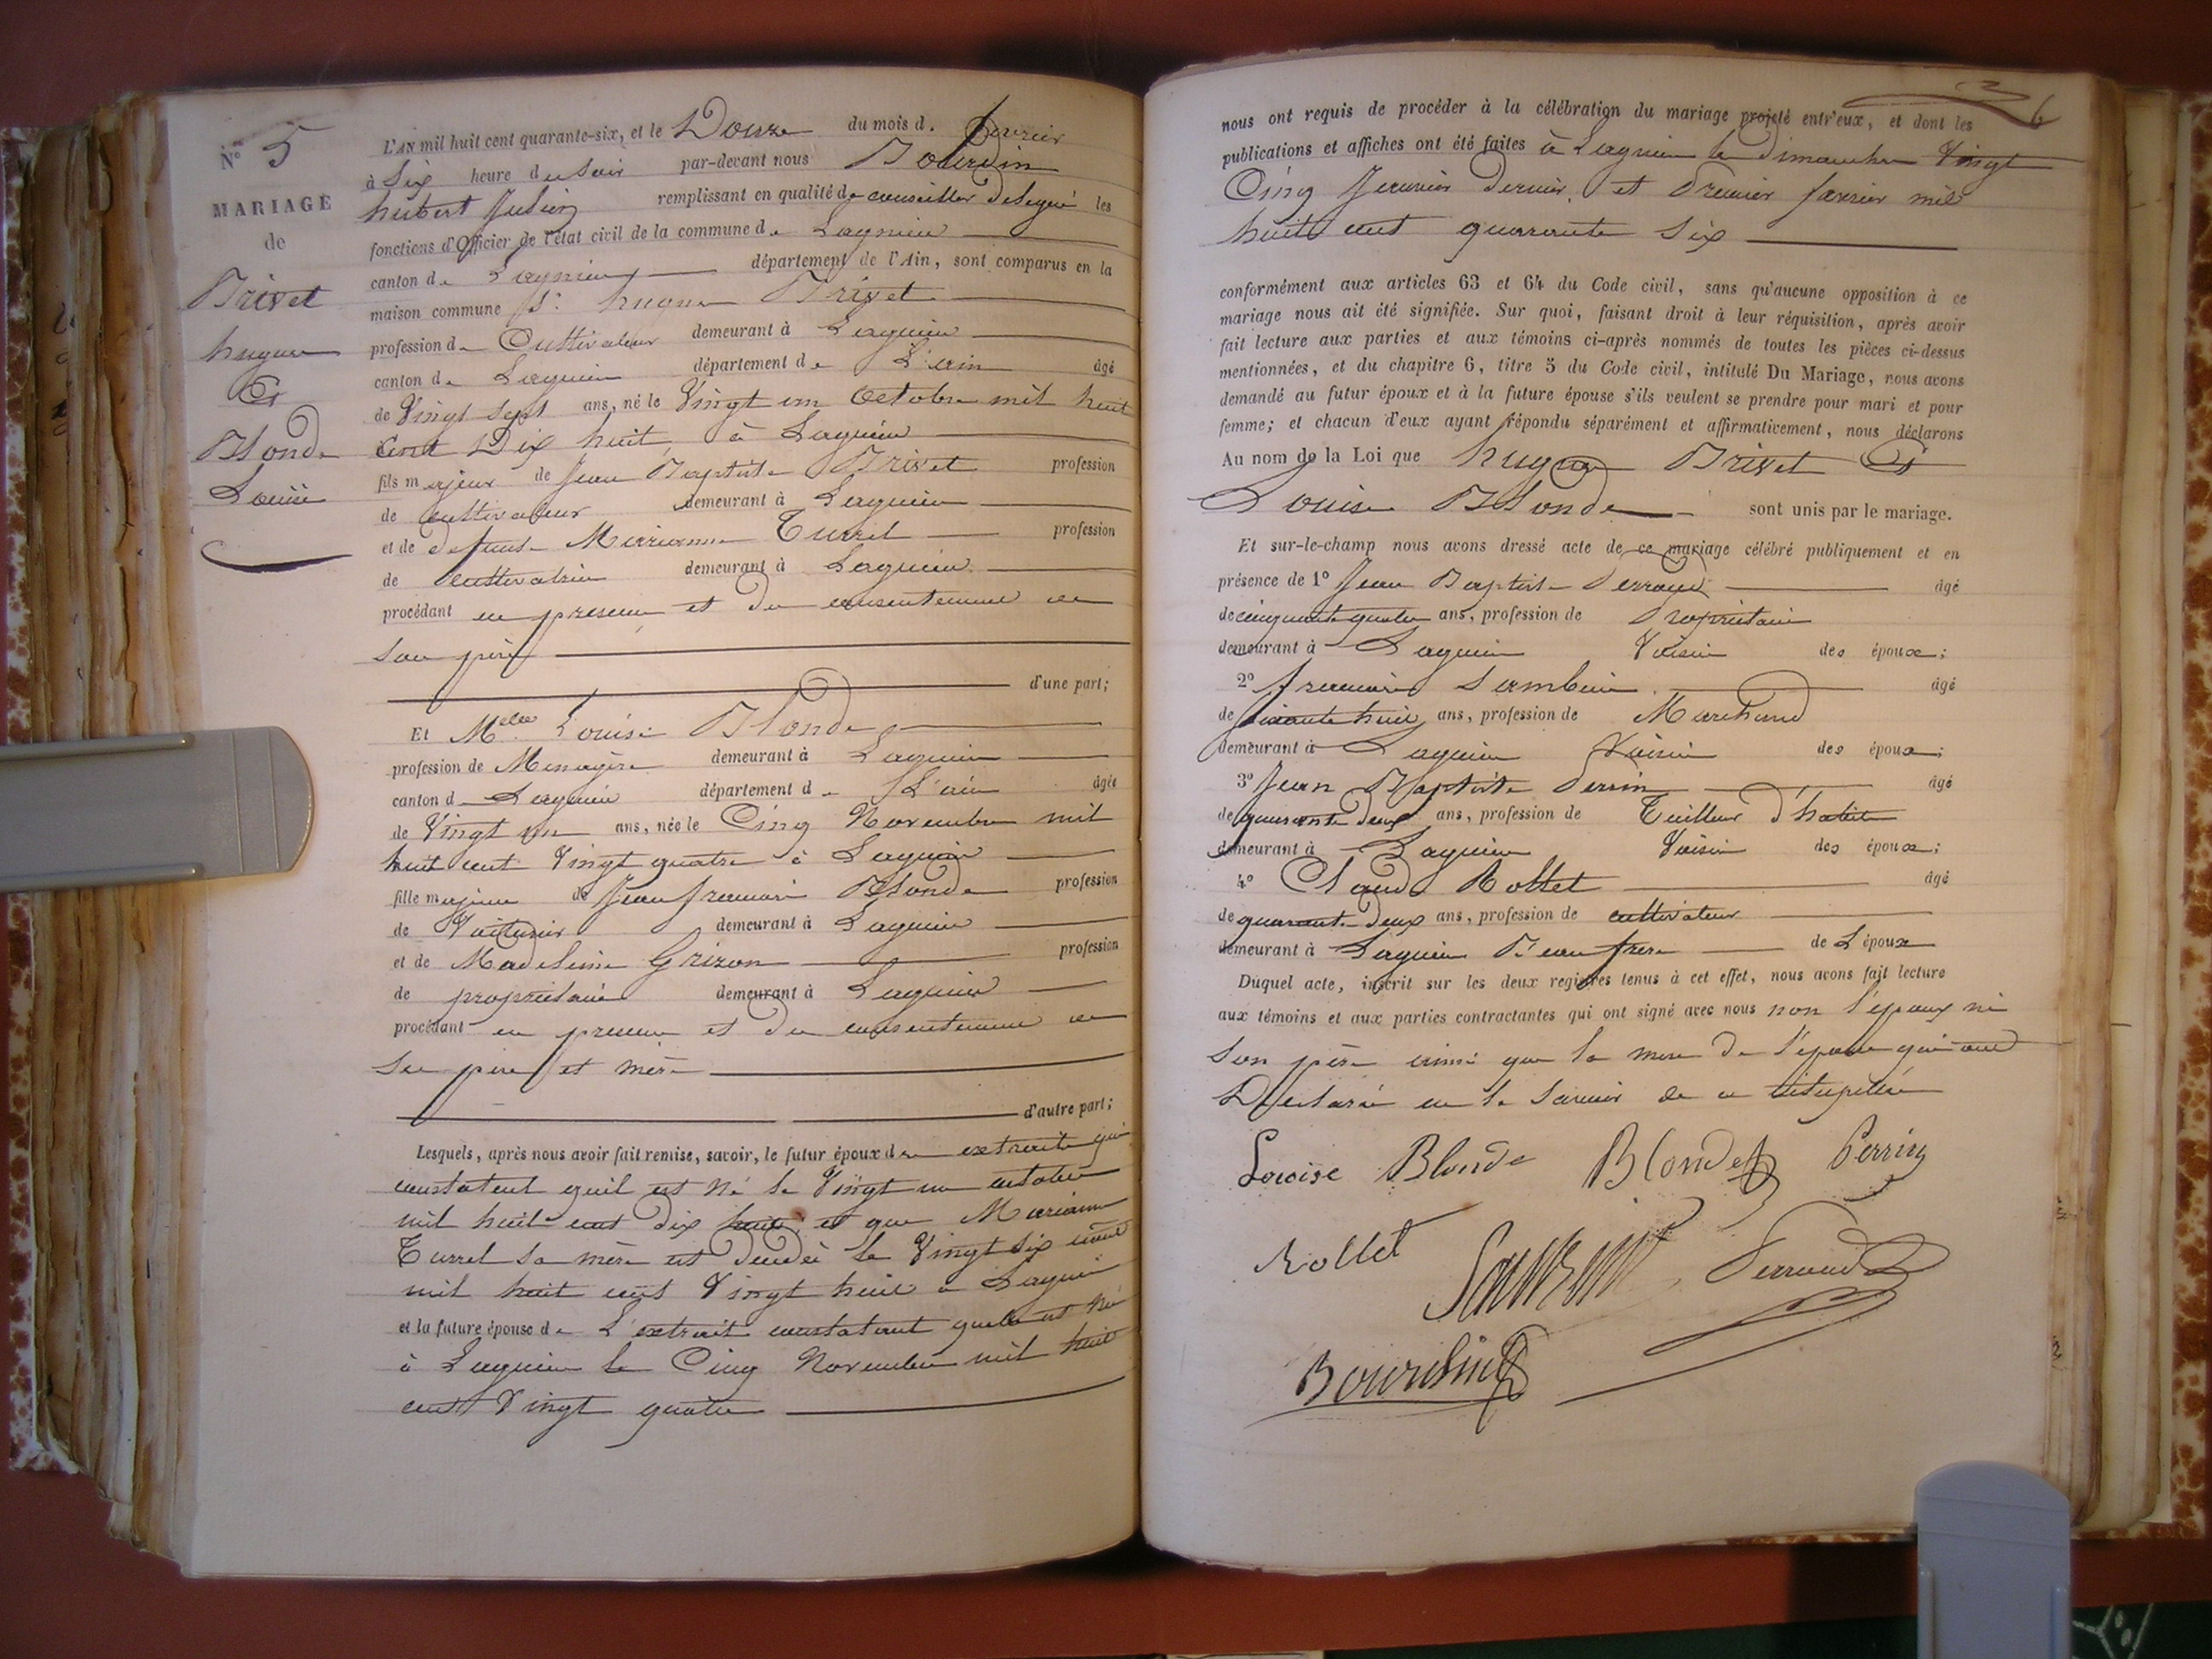 N° 5
MARIAGE
de
Brivet
hugue
Et
Blonde
Louise
L'AN mil huit cent quarante-six, et le Douze du mois d. fevrier
à Six heure du Soir par-devant nous Bourdin
hubert Julien remplissant en qualité de conseiller délégué les
fonctions d'Officier de l'état civil de la commune de Lagnieu
canton de Lagnieu département de l'Ain, sont comparus en la
maison commune Sr. hugue Brivet
profession de Cultivateur demeurant à Lagnieu
canton de Lagnieu département de L'ain âgé
de Vingt Sept ans, né le Vingt un Octobre mil huit
Cent Dix huit à Lagnieu
fils majeur de Jean Baptiste Brivet profession
de cultivateur demeurant à Lagnieu
et de defunte Marianne Turrel profession
de cultivatrice demeurant à Lagnieu
procédant en presence et du consentement de
Son père
d'une part;
Et Melle Louise Blonde
profession de Menagère demeurant à Lagnieu
canton de Lagnieu département de L'ain âgée
de Vingt un ans, née le Cinq Novembre mil
huit cent Vingt quatre à Lagnieu
fille majeure de Jean francois Blonde profession
de Voiturier demeurant à Lagnieu
et de Madeleine Grizon profession
de propriétaire demeurant à Lagnieu
procédant en presence et du consentement de
Ses père et mère
d'autre part;
Lesquels, après nous avoir fait remise, savoir, le futur époux des extraits qui
constatent quil est Né le Vingt un octobre
mil huit cent dix huit et que Marianne
Turrel sa mère est décédée le Vingt six août
mil huit cent Vingt huit à Lagnieu
et la future épouse de L'extrait constatant quelle est Né
à Lagnieu le Cinq Novembre mil huit
cent Vingt quatre
6
nous ont requis de procéder à la célébration du mariage projeté entr'eux, et dont les
publications et affiches ont été faites à Lagnieu le dimanche Vingt
Cinq Janvier dernier et Premier fevrier mil
huit cent quarante Six
conformément aux articles 63 et 64 du Code civil, sans qu'aucune opposition à ce
mariage nous ait été signifiée. Sur quoi, faisant droit à leur réquisition, après avoir
fait lecture aux parties et aux témoins ci-après nommés de toutes les pièces ci-dessus
mentionnées, et du chapitre 6, titre 5 du Code civil, intitulé Du Mariage, nous avons
demandé au futur époux et à la future épouse s'ils veulent se prendre pour mari et pour
femme; et chacun d'eux ayant répondu séparément et affirmativement, nous déclarons
Au nom de la Loi que hugue Brivet Et
Louise Blonde sont unis par le mariage.
Et sur-le-champ nous avons dressé acte de ce mariage célébré publiquement et en
présence de 1° Jean Baptiste Perraud âgé
de cinquante quatre ans, profession de Propriétaire
demeurant à Lagnieu Voisin des époux;
2° francois âgé
de huit ans, profession de Marchand
demeurant à Lagnieu Voisin des époux;
3° Jean Baptiste Perrin âgé
de quarante deux ans, profession de Tailleur d'habit
demeurant à Lagnieu Voisin des époux;
4° Claude Rollet âgé
de quarante deux ans, profession de cultivateur
demeurant à Lagnieu Beau frère de L'époux
Duquel acte, inscrit sur les deux registres tenus à cet effet, nous avons fait lecture
aux témoins et aux parties contractantes qui ont signé avec nous non l'époux ni
Son père ainsi que la mère de l'épouse qui ont
Déclaré ne le Savoir de ce
Louise Blonde Blonde Perrin
Rollet Perraud
Bourdin